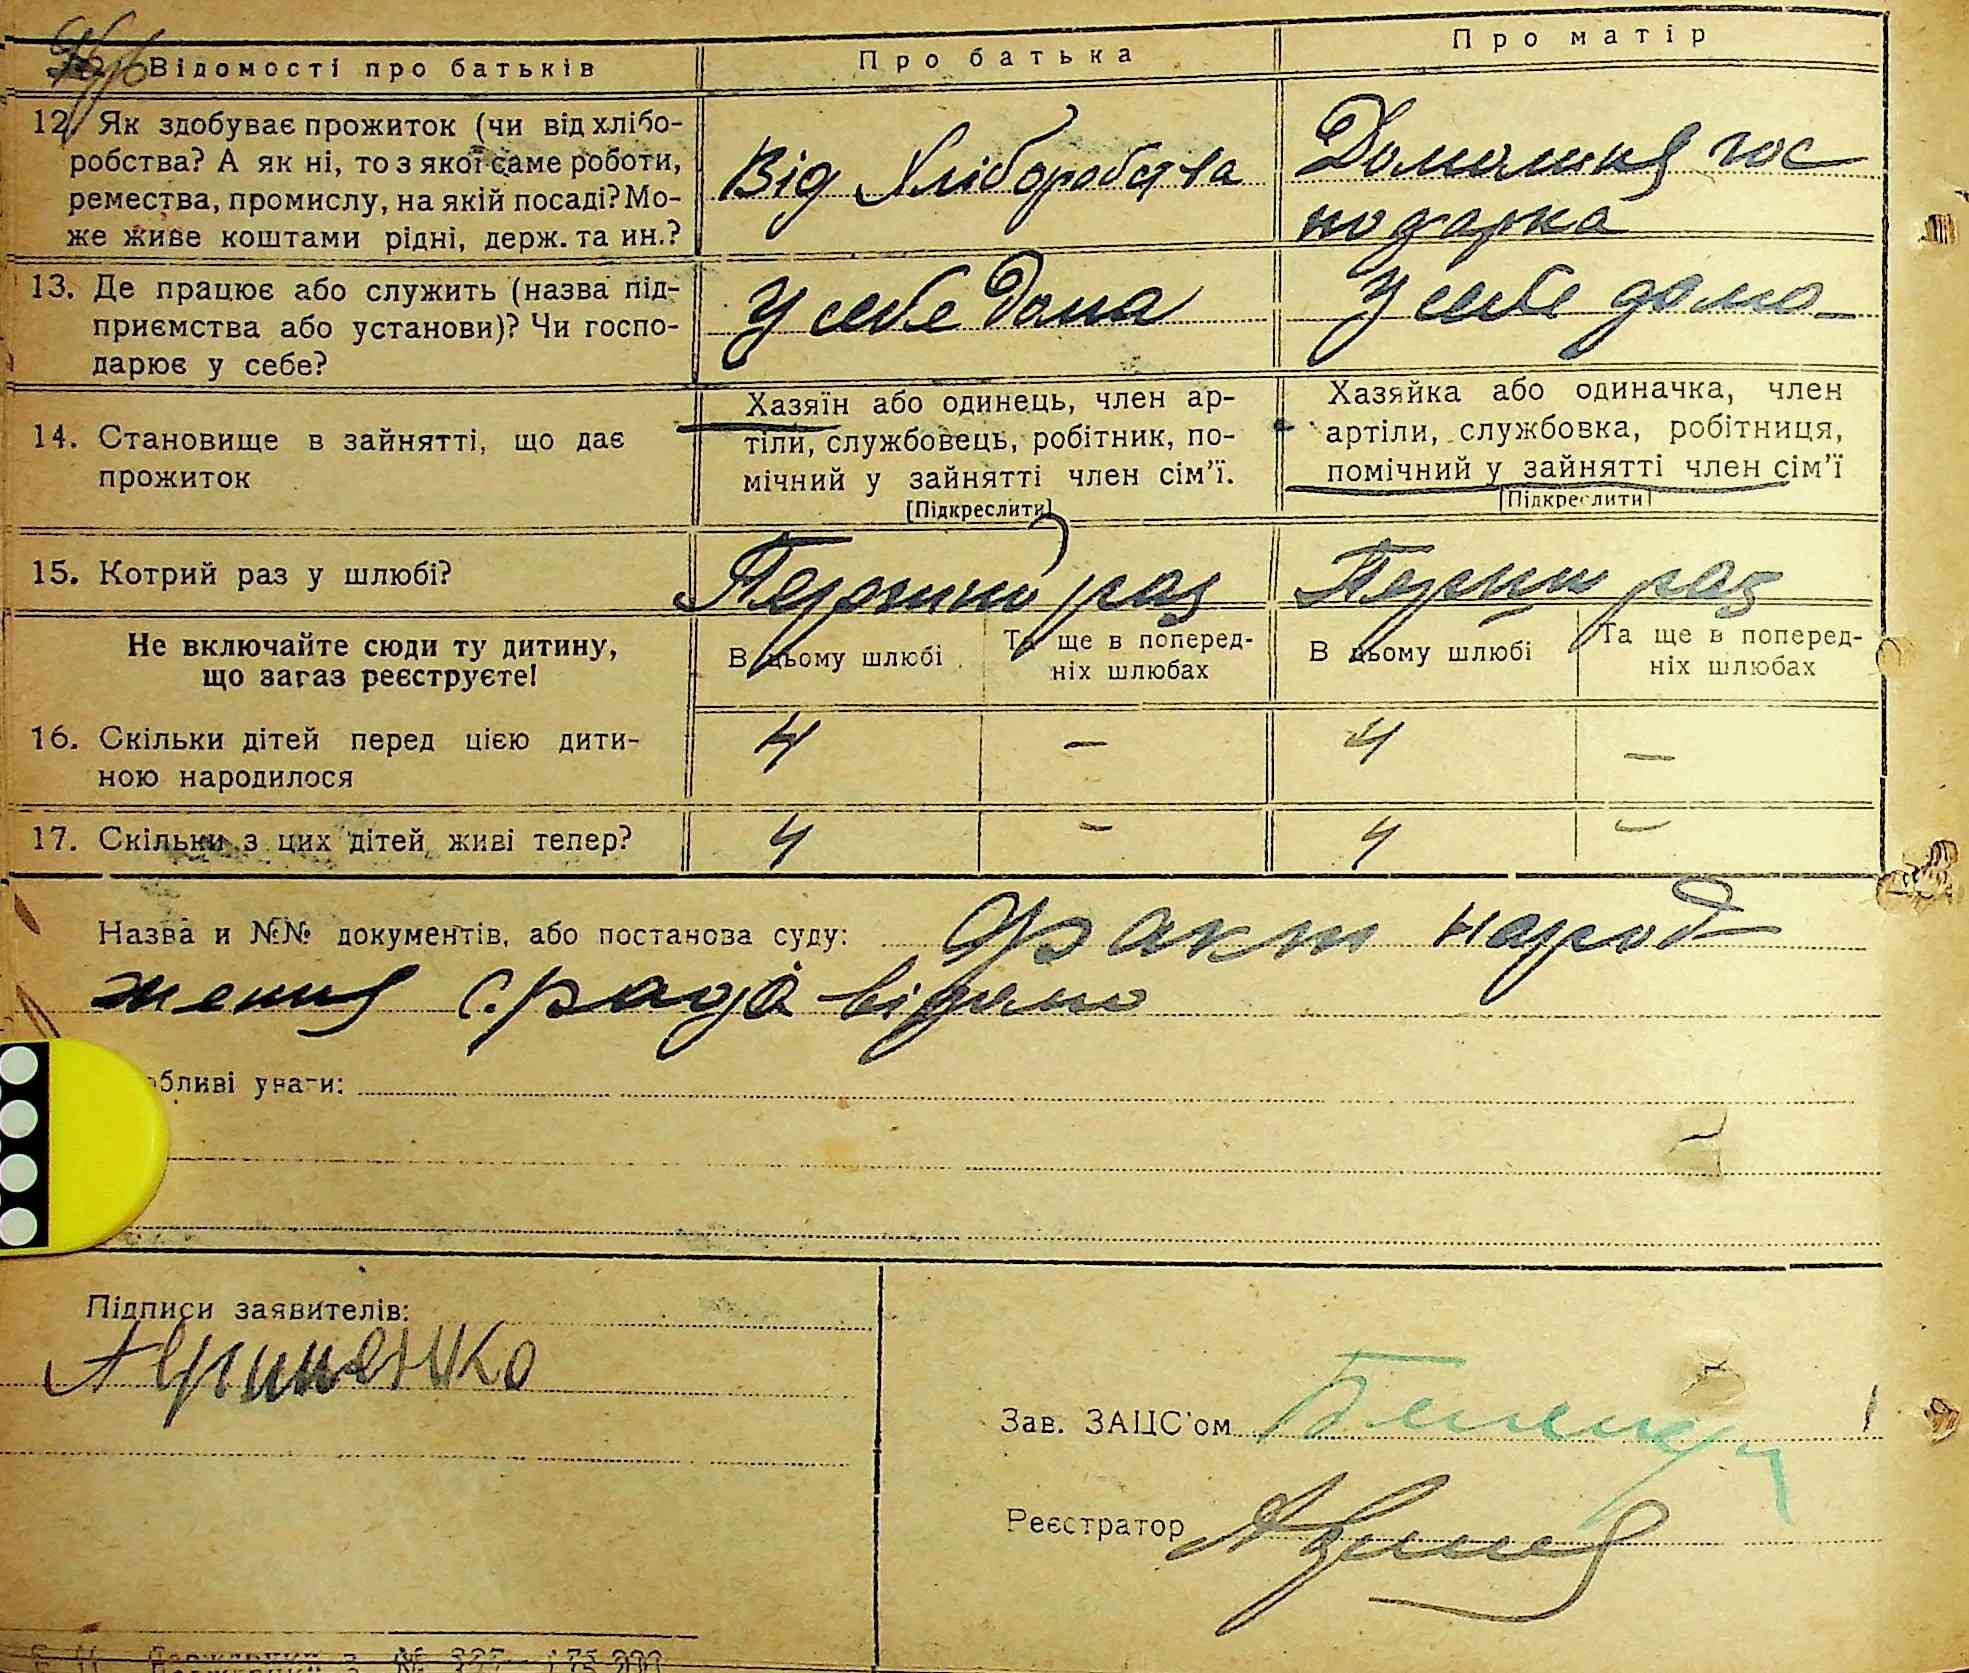 Відомості про батьків
Про батька
Про матір
12. Як здобуває прожиток (чи від хлібо-
робства? А як ні, то з якої саме роботи,
ремества, промислу, на якій посаді? Мо-
же живе коштами рідні, держ. та ин.?
Від Хліборобства
Домашня гос
подарка
13. Де працює або служить (назва під-
приємства або установи)? Чи госпо-
дарює у себе?
У себе дома
У себе дома
14. Становище в зайнятті, що дає
прожиток
Хазяїн або одинець, член ар-
тіли, службовець, робітник, по-
мічний у зайнятті член сім'ї.
[Підкреслити]
Хазяйка або одиначка, член
артіли, службовка, робітниця,
помічний у зайнятті член сім'ї
[Підкреслити]
15. Котрий раз у шлюбі?
Перший раз
Перший раз
Не включайте сюди ту дитину,
що загаз реєструєте!
В цьому шлюбі
Та ще в поперед-
ніх шлюбах
В цьому шлюбі
Та ще в поперед-
ніх шлюбах
16. Скільки дітей перед цією дити-
ною народилося
4 — 4 —
17. Скільки з цих дітей живі тепер?
4 — 4 —
Назва и №№ документів, або постанова суду: факт народ
ження с.раді відомо
обливі уваги:
Підписи заявителів:
Зав. ЗАЦС'ом
Реєстратор